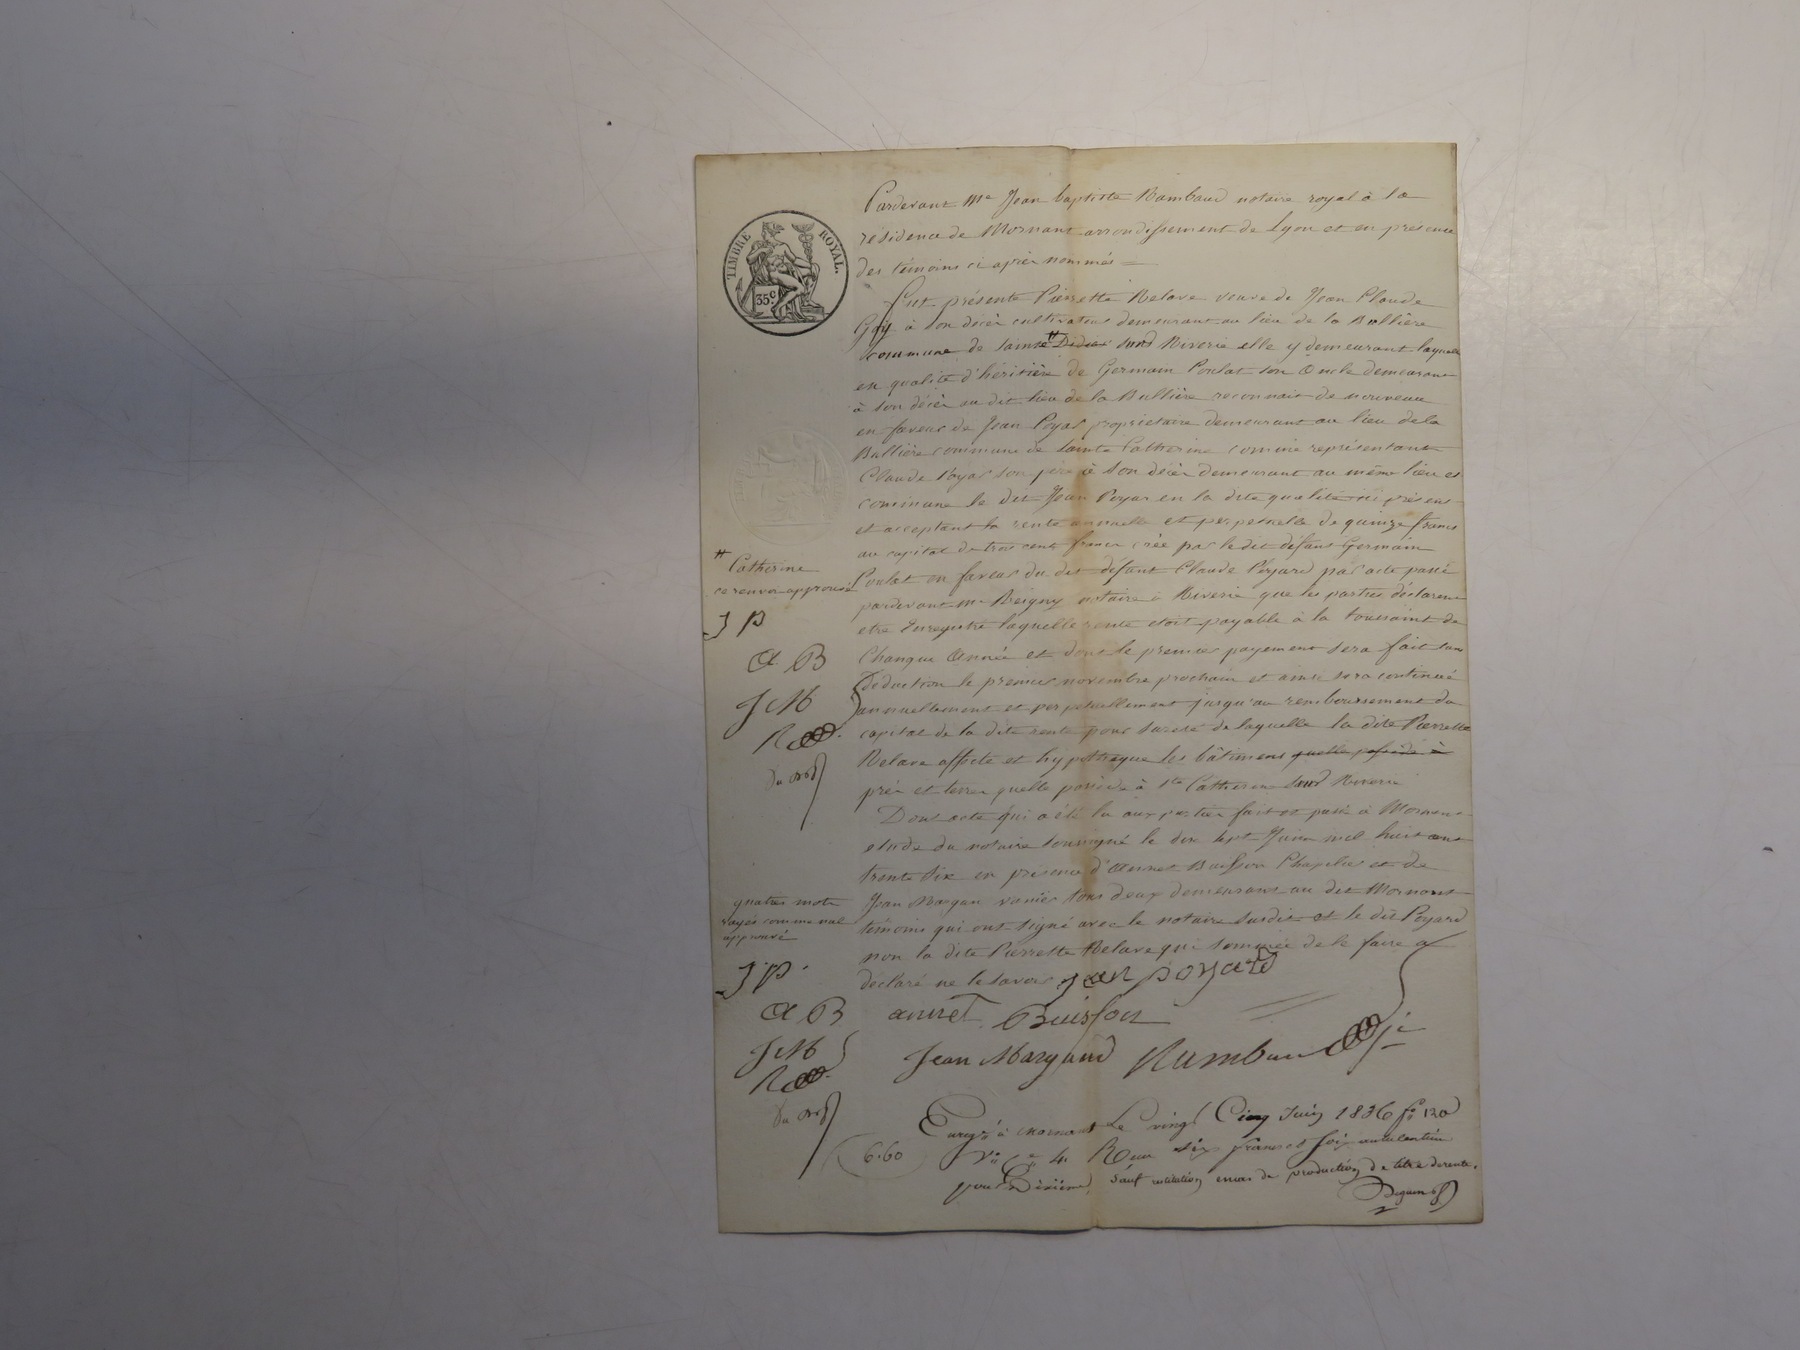 TIMBRE ROYAL.
35c
Pardevant Me Jean baptiste Rambaud notaire royal à la
résidence de Mornant arrondissement de Lyon et en présence
des témoins ci après nommés =
Fut présente Pierrette Relave veuve de Jean Claude
Goy à son décès cultivateur demeurant au lieu de la Bullière
commune de sainte # Didier sous Riverie elle y demeurant laquelle
en qualité d'héritière de Germain Poulat son Oncle demeurant
à son décès au dit lieu de la Bullière reconnait de nouveau
en faveur de Jean Poyas propriétaire demeurant au lieu de la
Bullière commune de Sainte Catherine comme représentant
Claude Poyas son père à son décès demeurant au même lieu et
commune le dit Jean Poyas en la dite qualité ici présent
et acceptant la rente annuelle et perpetuelle de quinze francs
au capital de trois cent francs créé par le dit défunt Germain
Poulat en faveur du dit défunt Claude Poyard par acte passé
pardevant Me Reigny notaire à Riverie que les parties déclarent
etre Enregistré laquelle rente etoit payable à la toussaint de
Chanque Année et dont le premier payement sera fait sans
Déduction le premier novembre prochain et ainsi sera continué
annuellement et perpetuellement jusqu'au remboursement du
capital de la dite rente pour sureté de laquelle la dite Pierrette
Relave affecte et hypothèque les bâtimens quelle possède à
près et terres quelle possède à Ste Catherine sous Riverie
Dont acte qui a été lu aux parties fait et passé à Mornant
etude du notaire soussigné le dix sept Juin mil huit cent
trente six en présence d'Annet Buisson Chapelier et de
Jean Margan vanier tous deux demeurant au dit Mornant
témoins qui ont signé avec le notaire susdit et le dit Poyard
non la dite Pierrette Relave qui sommée de le faire a
declaré ne le savoir jean poyard
annet Buisson
Jean Margand Rambaud
# Catherine
ce renvoi approuvé
J P
A B
J M
R
quatres mots
rayés comme nul
approuvé
J P.
A B
J M
R
Enregé à Mornant Le vingt Cinq Juin 1836 fo 120
Vo Ce 4. Reçu six francs soixante centimes
pour Dixième, Sauf restitution en cas de production de titre de rente.
6.60